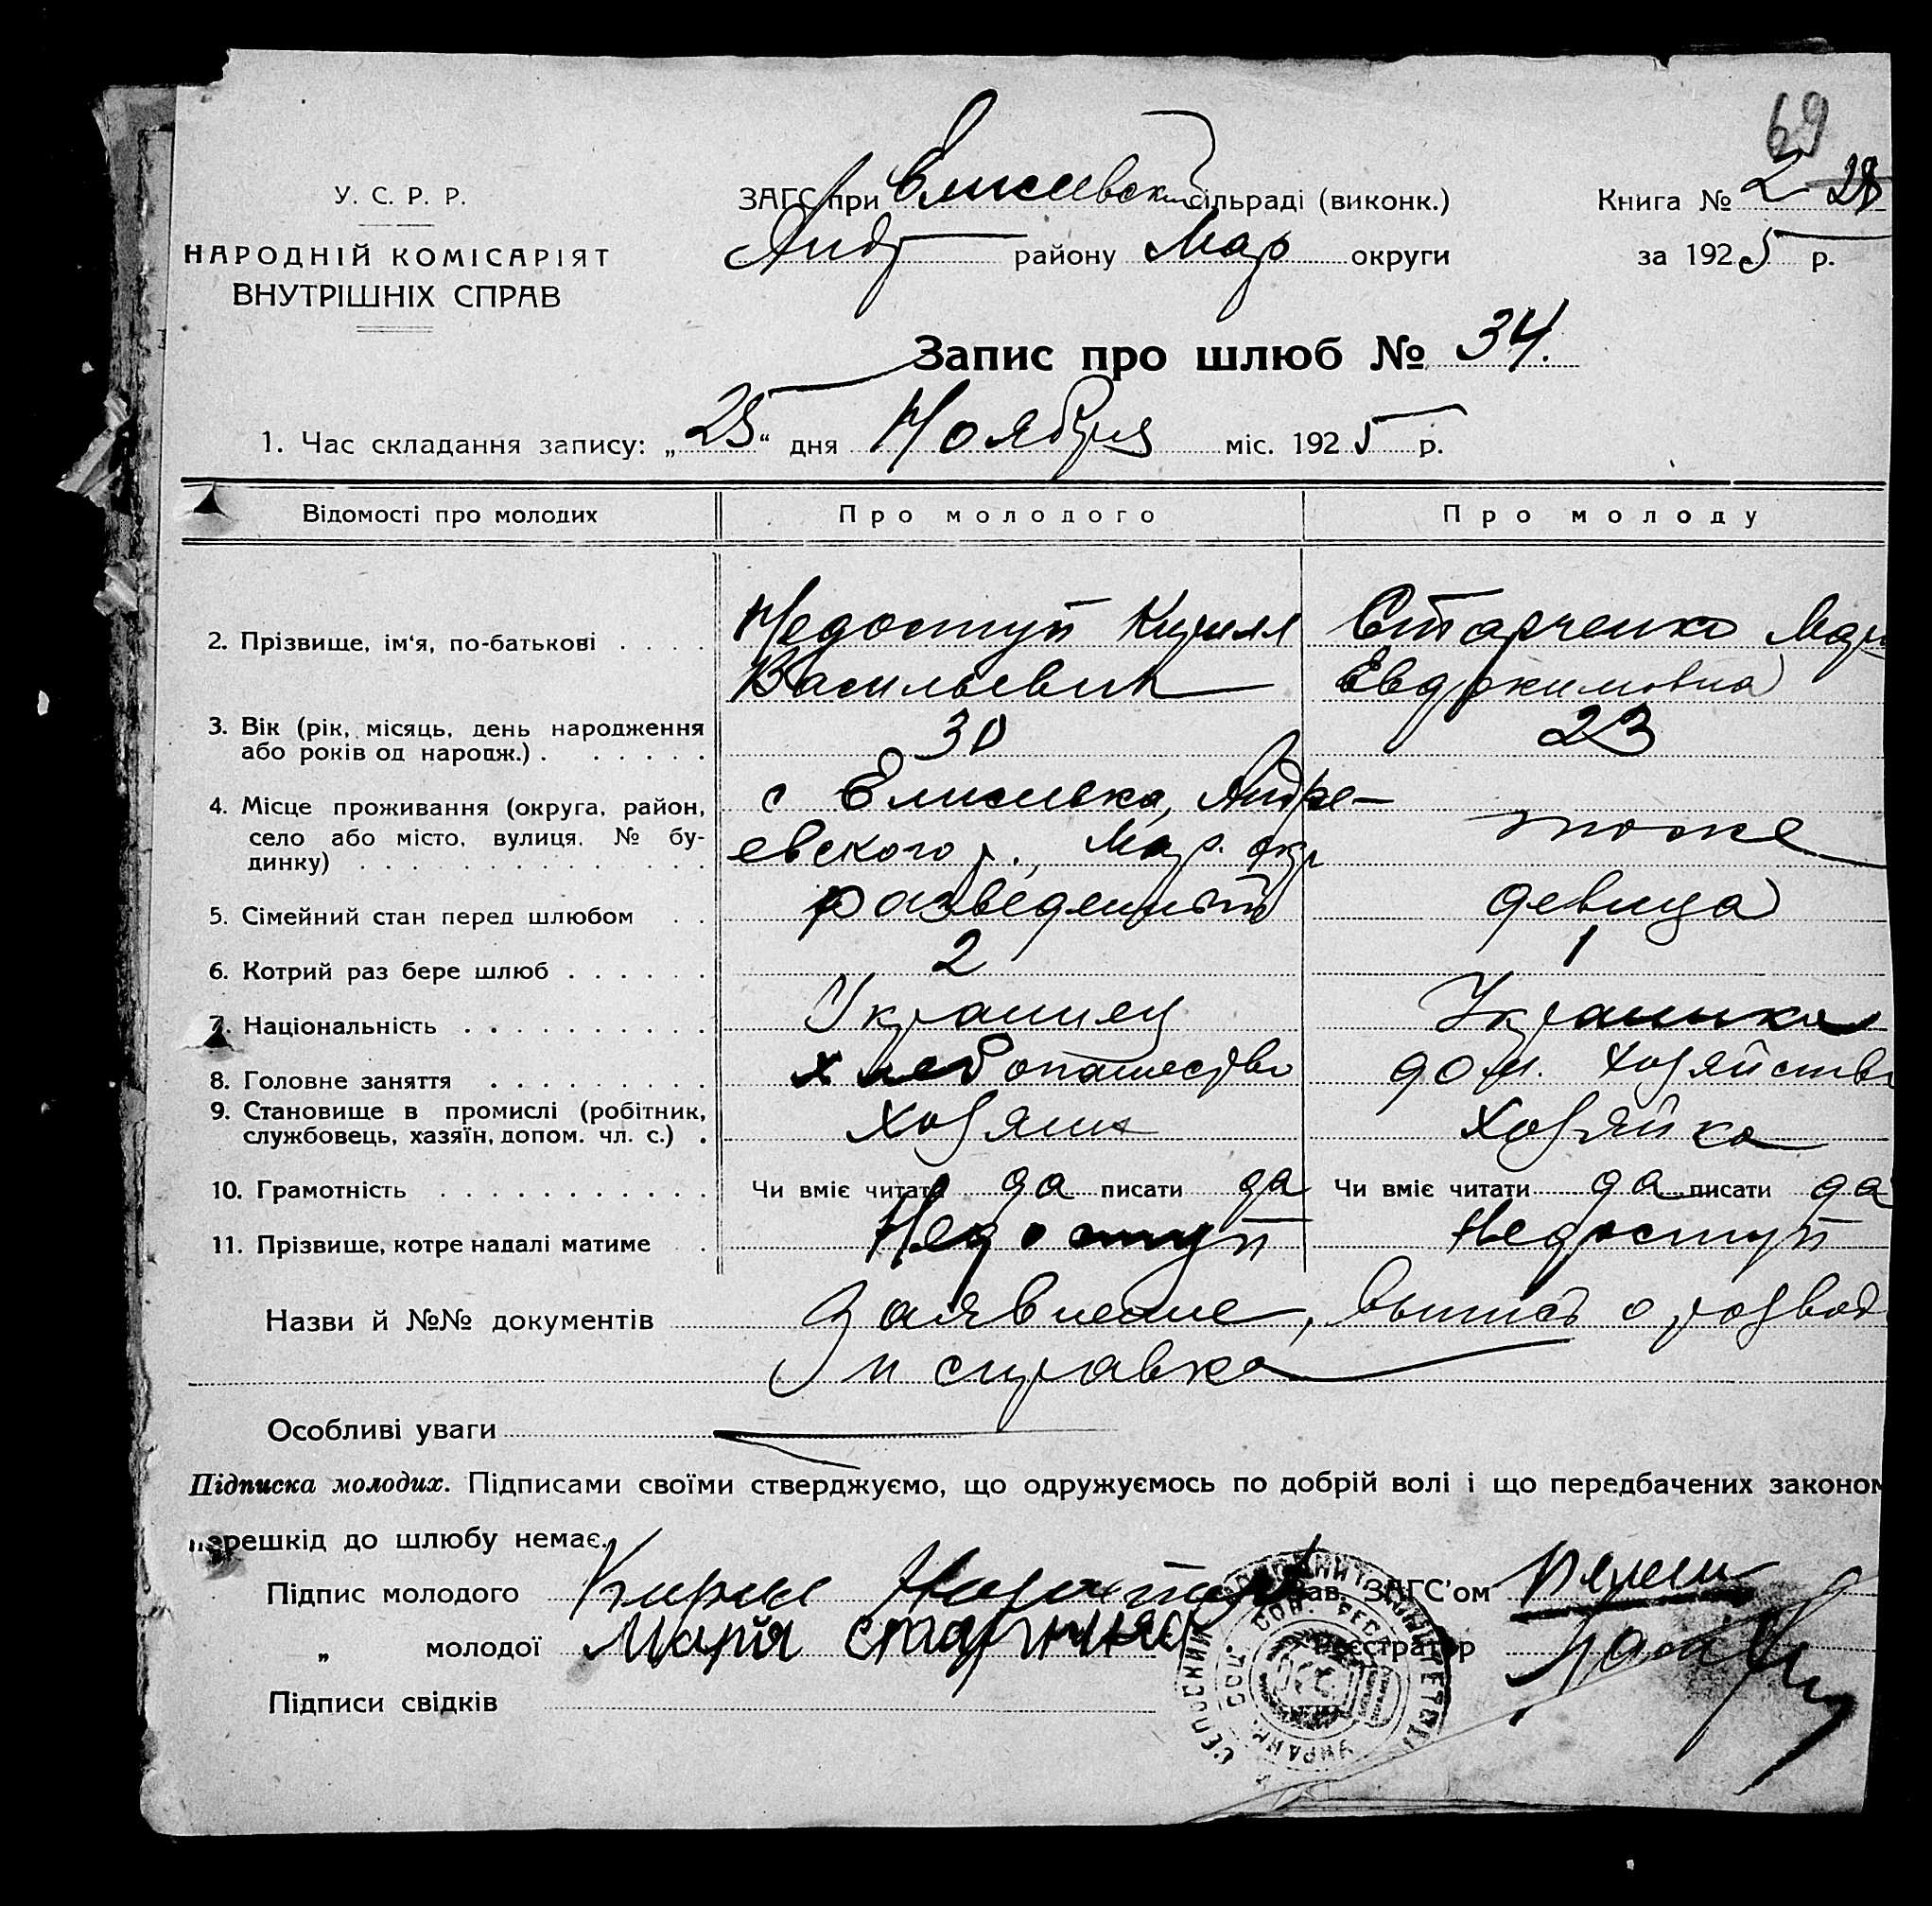 69
У. С. Р. Р.
НАРОДНІЙ КОМІСАРІЯТ
ВНУТРІШНІХ СПРАВ
ЗАГС при Елисеевской сільраді (виконк.)
Андр району Мар округи
Книга № 2 28
за 1925 р.
Запис про шлюб № 34.
1. Час складання запису: „25“ дня Ноября міс. 1925 р.
Відомості про молодих Про молодого Про молоду
2. Прізвище, ім‘я, по-батькові Недоступ Кирилл Старченко Мари
Васильевич Евдокимовна
3. Вік (рік, місяць, день народження
або років од народж.) 30 23
4. Місце проживання (округа, район, с Елисеевка, Андре-
село або місто, вулиця. № бу- евского р., Мар. окр тоже
динку)
5. Сімейний стан перед шлюбом разведенный девица
6. Котрий раз бере шлюб 2 1
7. Національність Украинец Украинка
8. Головне заняття хлебопашество дом. хозяйство
9. Становище в промислі (робітник,
службовець, хазяїн, допом. чл. с.) Хозяин Хозяйка
10. Грамотність Чи вміє читати да писати да Чи вміє читати да писати да
11. Прізвище, котре надалі матиме Недоступ Недоступ
Назви й №№ документів Заявление, выпись о развод
и справка
Особливі уваги
Підписка молодих. Підписами своїми стверджуємо, що одружуємось по добрій волі і що передбачених законом
перешкід до шлюбу немає.
Підпис молодого Кирил Недоступ Зав. ЗАГС’ом
„ молодої Марія Реєстратор
Підписи свідків